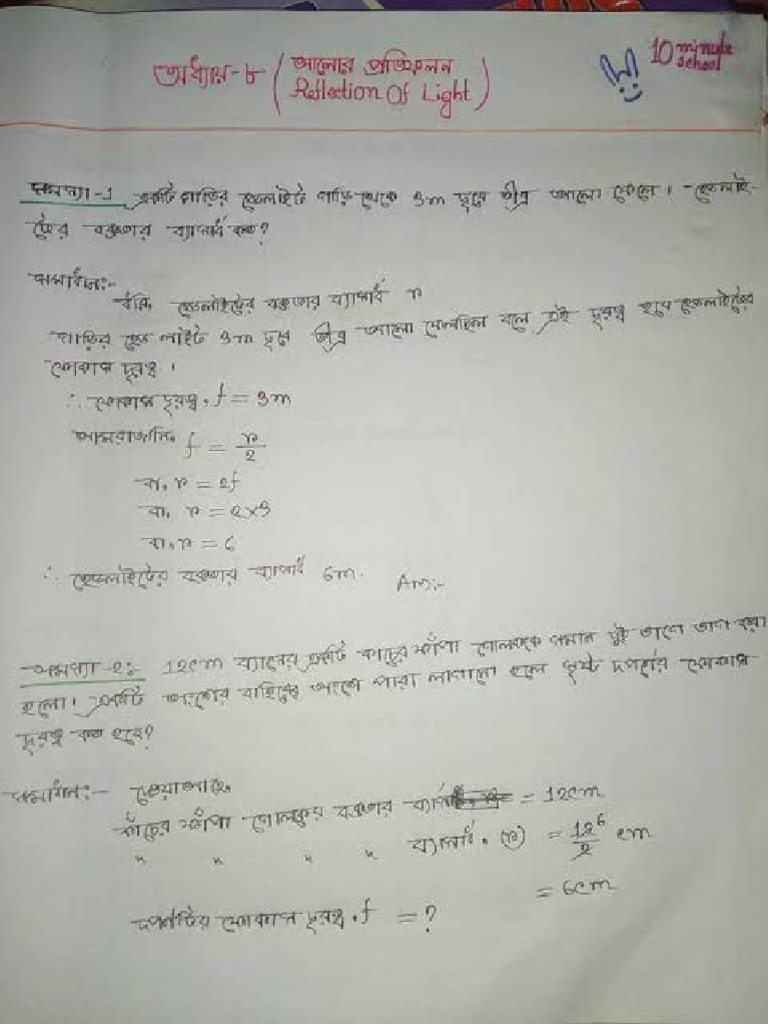 অধ্যায়-৮ (আলোর প্রতিফলন
Reflection Of Light)
10 minute school
সমস্যা-1 একটি গাড়ির হেডলাইট গাড়ি থেকে 3m দূরে তীব্র আলো ফেলে। হেডলাই-
টের বক্রতার ব্যাসার্ধ কত?
সমাধান:-
ধরি হেডলাইটের বক্রতার ব্যাসার্ধ r
গাড়ির হেড লাইট 3m দূরে তীব্র আলো ফেলছিল বলে এই দূরত্ব হবে হেডলাইটের
ফোকাস দূরত্ব।
∴ ফোকাস দূরত্ব, f = 3m
আমরাজানি, f = r/2
বা, r = 2f
বা, r = 2×3
বা, r = 6
∴ হেডলাইটের বক্রতার ব্যাসার্ধ 6m. Ans:-
সমস্যা-২:- 12cm ব্যাসের একটি কাচের ফাঁপা গোলককে সমান দুই ভাগে ভাগ করা
হলো। একটি অংশের বাহিরের অংশে পারা লাগালো হলে সৃষ্ট দর্পণের ফোকাস
দূরত্ব কত হবে?
সমাধান:- দেয়াআছে,
কাঁচের ফাঁপা গোলকের বক্রতার ব্যাস = 12cm
" " " " ব্যাসার্ধ, (r) = 12/2 6 cm
= 6cm
দর্পনটির ফোকাস দূরত্ব, f = ?